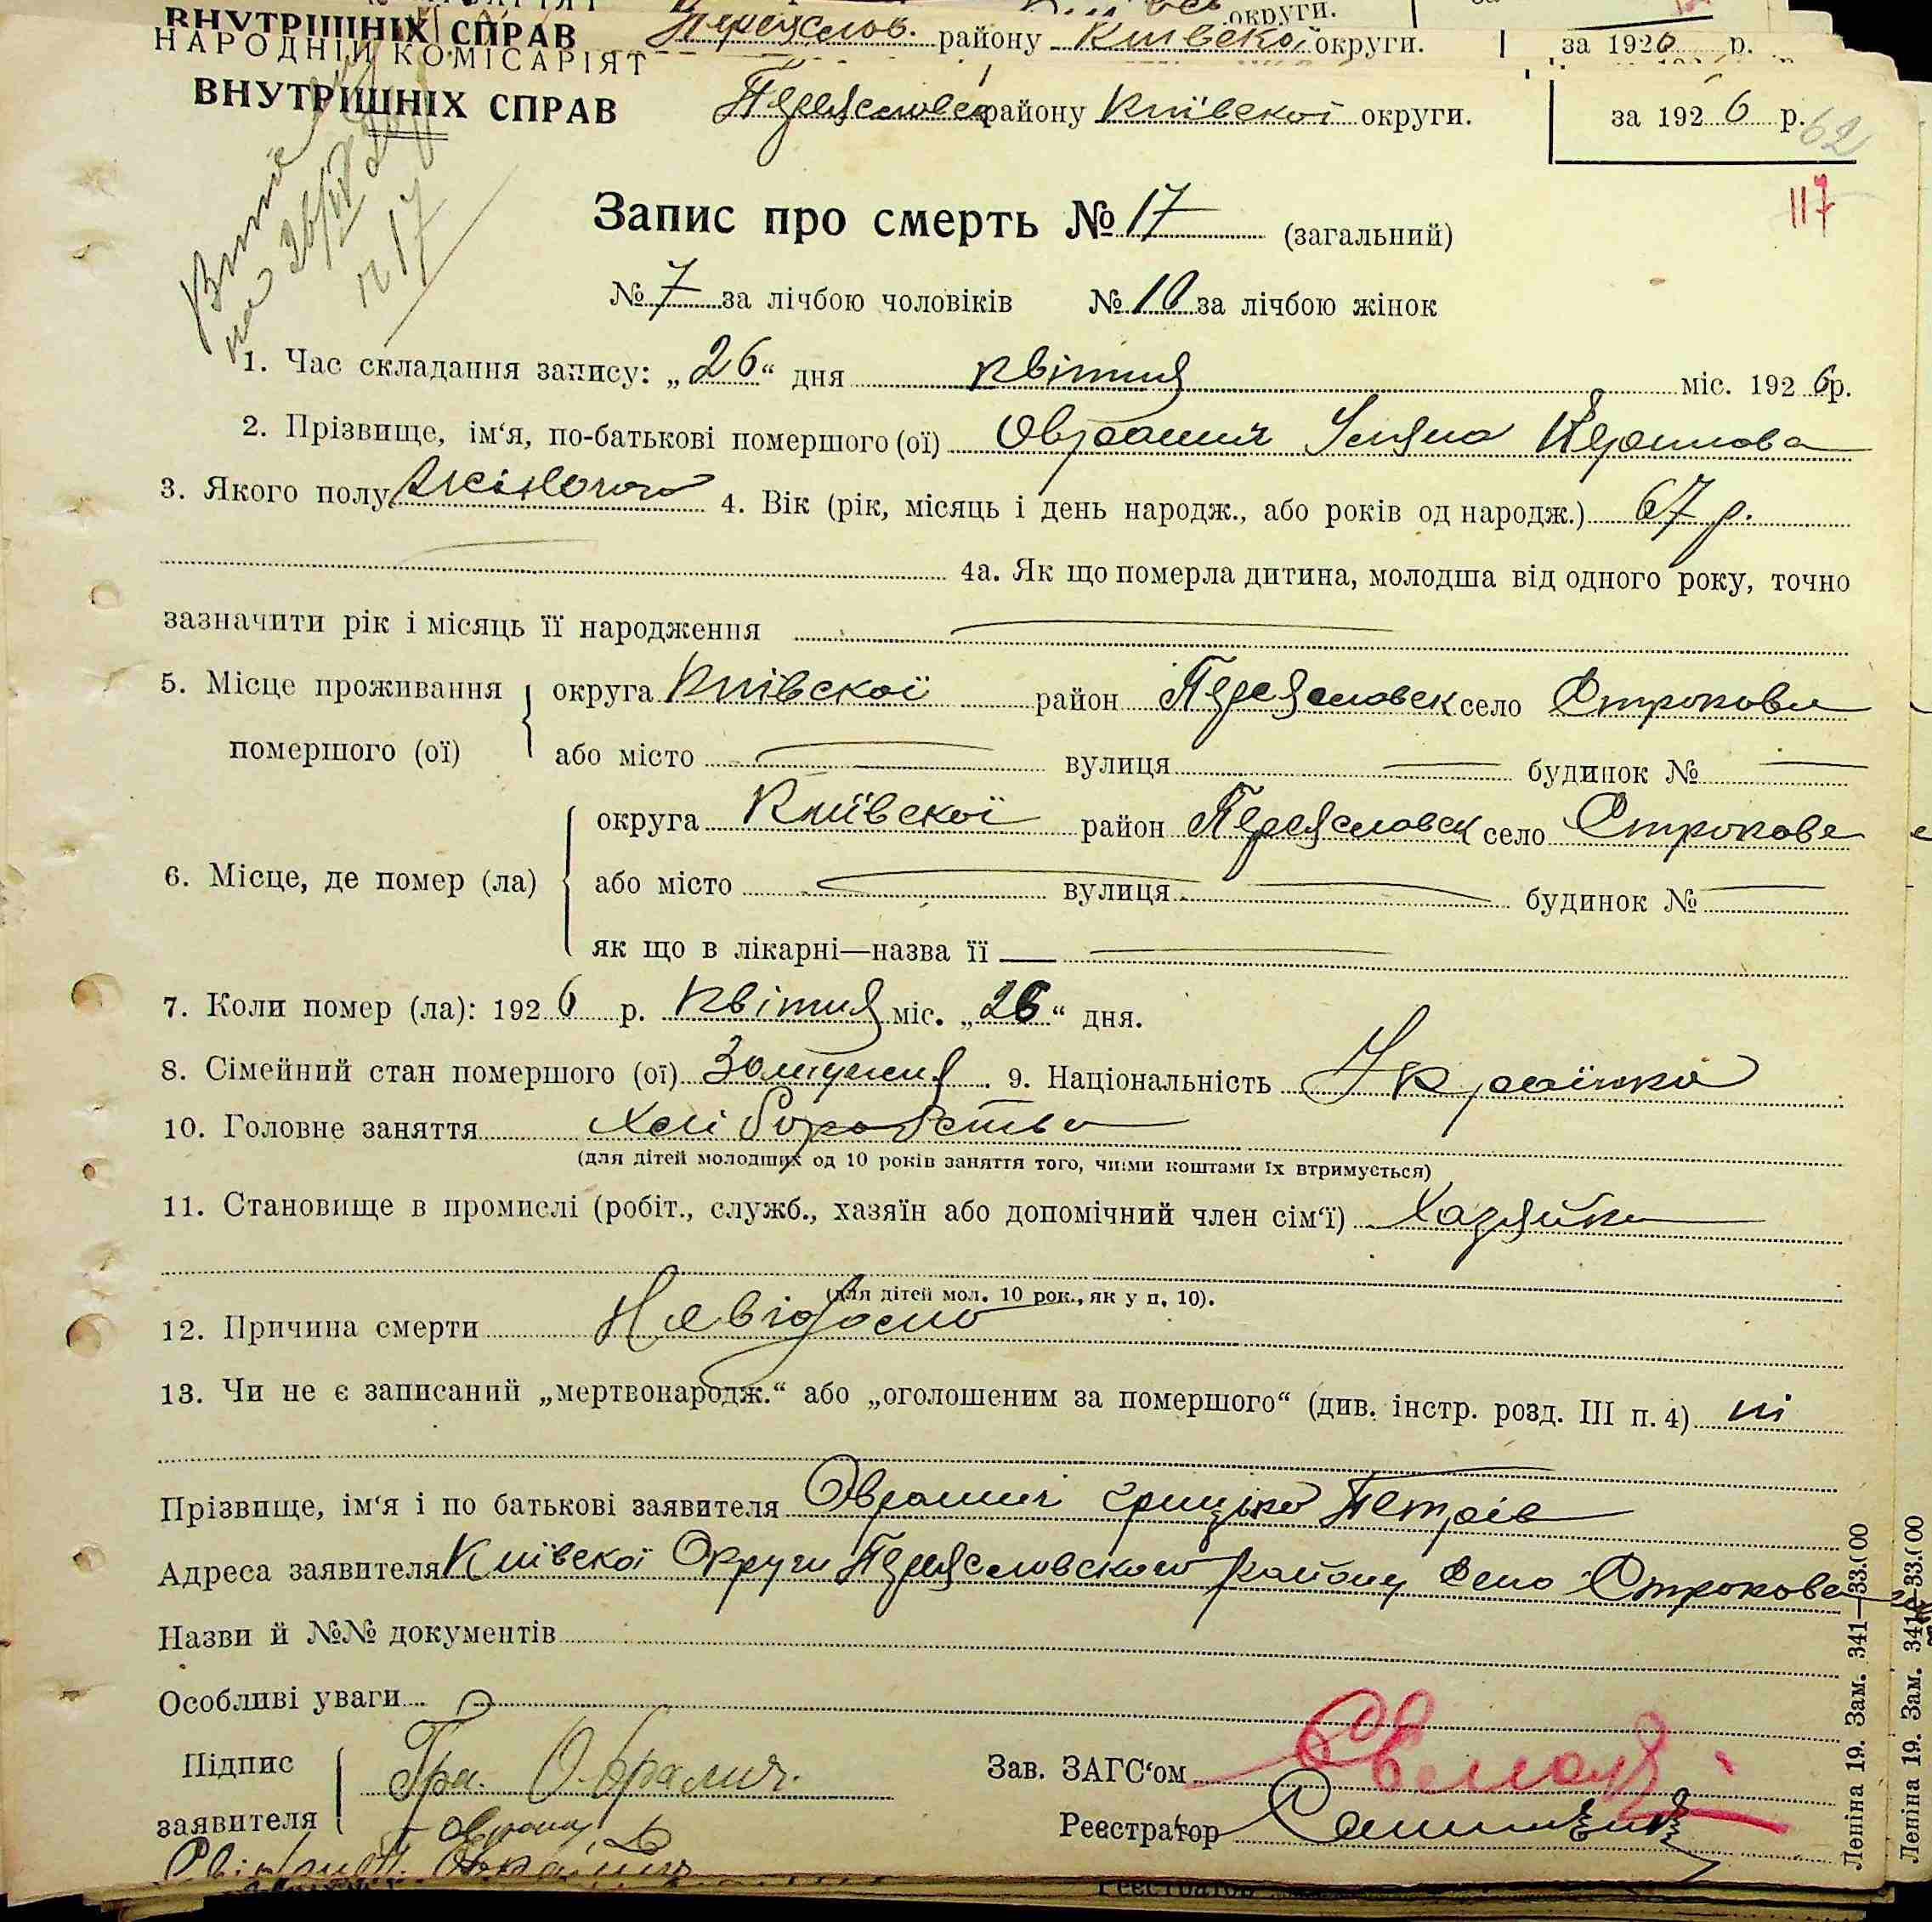 ВНУТРІШНІХ СПРАВ Переяслов. району Київської округи. за 1926 р.
НАРОДНІЙ КОМІСАРІЯТ
ВНУТРІШНІХ СПРАВ Переяславськ району Київскої округи. за 1926 р. 62
117
на 26/IV
№ 17
Запис про смерть № 17 (загальний)
№ 7 за лічбою чоловіків № 10 за лічбою жінок
1. Час складання запису: „26“ дня квітня міс. 1926 р.
2. Прізвище, ім‘я, по-батькові помершого (ої) Оврамич Уляна
3. Якого полу жіночого 4. Вік (рік, місяць і день народж., або років од народж.) 67 р.
4а. Як що померла дитина, молодша від одного року, точно
зазначити рік і місяць її народження
5. Місце проживання помершого (ої) округа Київскої район Переясловськ село Строкова
або місто вулиця будинок №
6. Місце, де помер (ла) округа Київскої район Переясловск село Строкова
або місто вулиця будинок №
як що в лікарні—назва її
7. Коли помер (ла): 1926 р. Квітня міс. „26“ дня.
8. Сімейний стан помершого (ої) Замужня 9. Національність Українка
10. Головне заняття Хліборобство
(для дітей молодших од 10 років заняття того, чиїми коштами їх втримується)
11. Становище в промислі (робіт., служб., хазяїн або допомічний член сім‘ї) Хазяйка
(для дітей мол. 10 рок., як у п. 10).
12. Причина смерти Невідомо
13. Чи не є записаний „мертвонародж.“ або „оголошеним за помершого“ (див. інстр. розд. III п. 4) ні
Прізвище, ім‘я і по батькові заявителя Оврамич Грицько Петрів
Адреса заявителя Київскої Округи Переясловского Району Село Строкова
Назви й №№ документів
Особливі уваги
Підпис заявителя Гри. Оврамич.
Зав. ЗАГС‘ом
Реєстратор
Леніна 19. Зам. 341—33.000
Леніна 19. Зам. 341—33.000